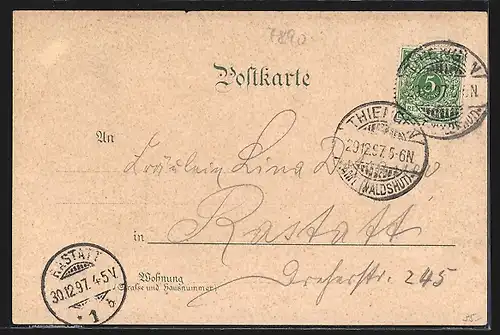 7890
Postkarte
5
THIENGEN
29.12.97.5-6N
AMT (WALDSHUT)
An
Fräulein Lina
in Rastatt
Wohnung
(Straße und Hausnummer)
Dreherstr. 245
RASTATT
30.12.97.4-5V.
* 1 b
35.-